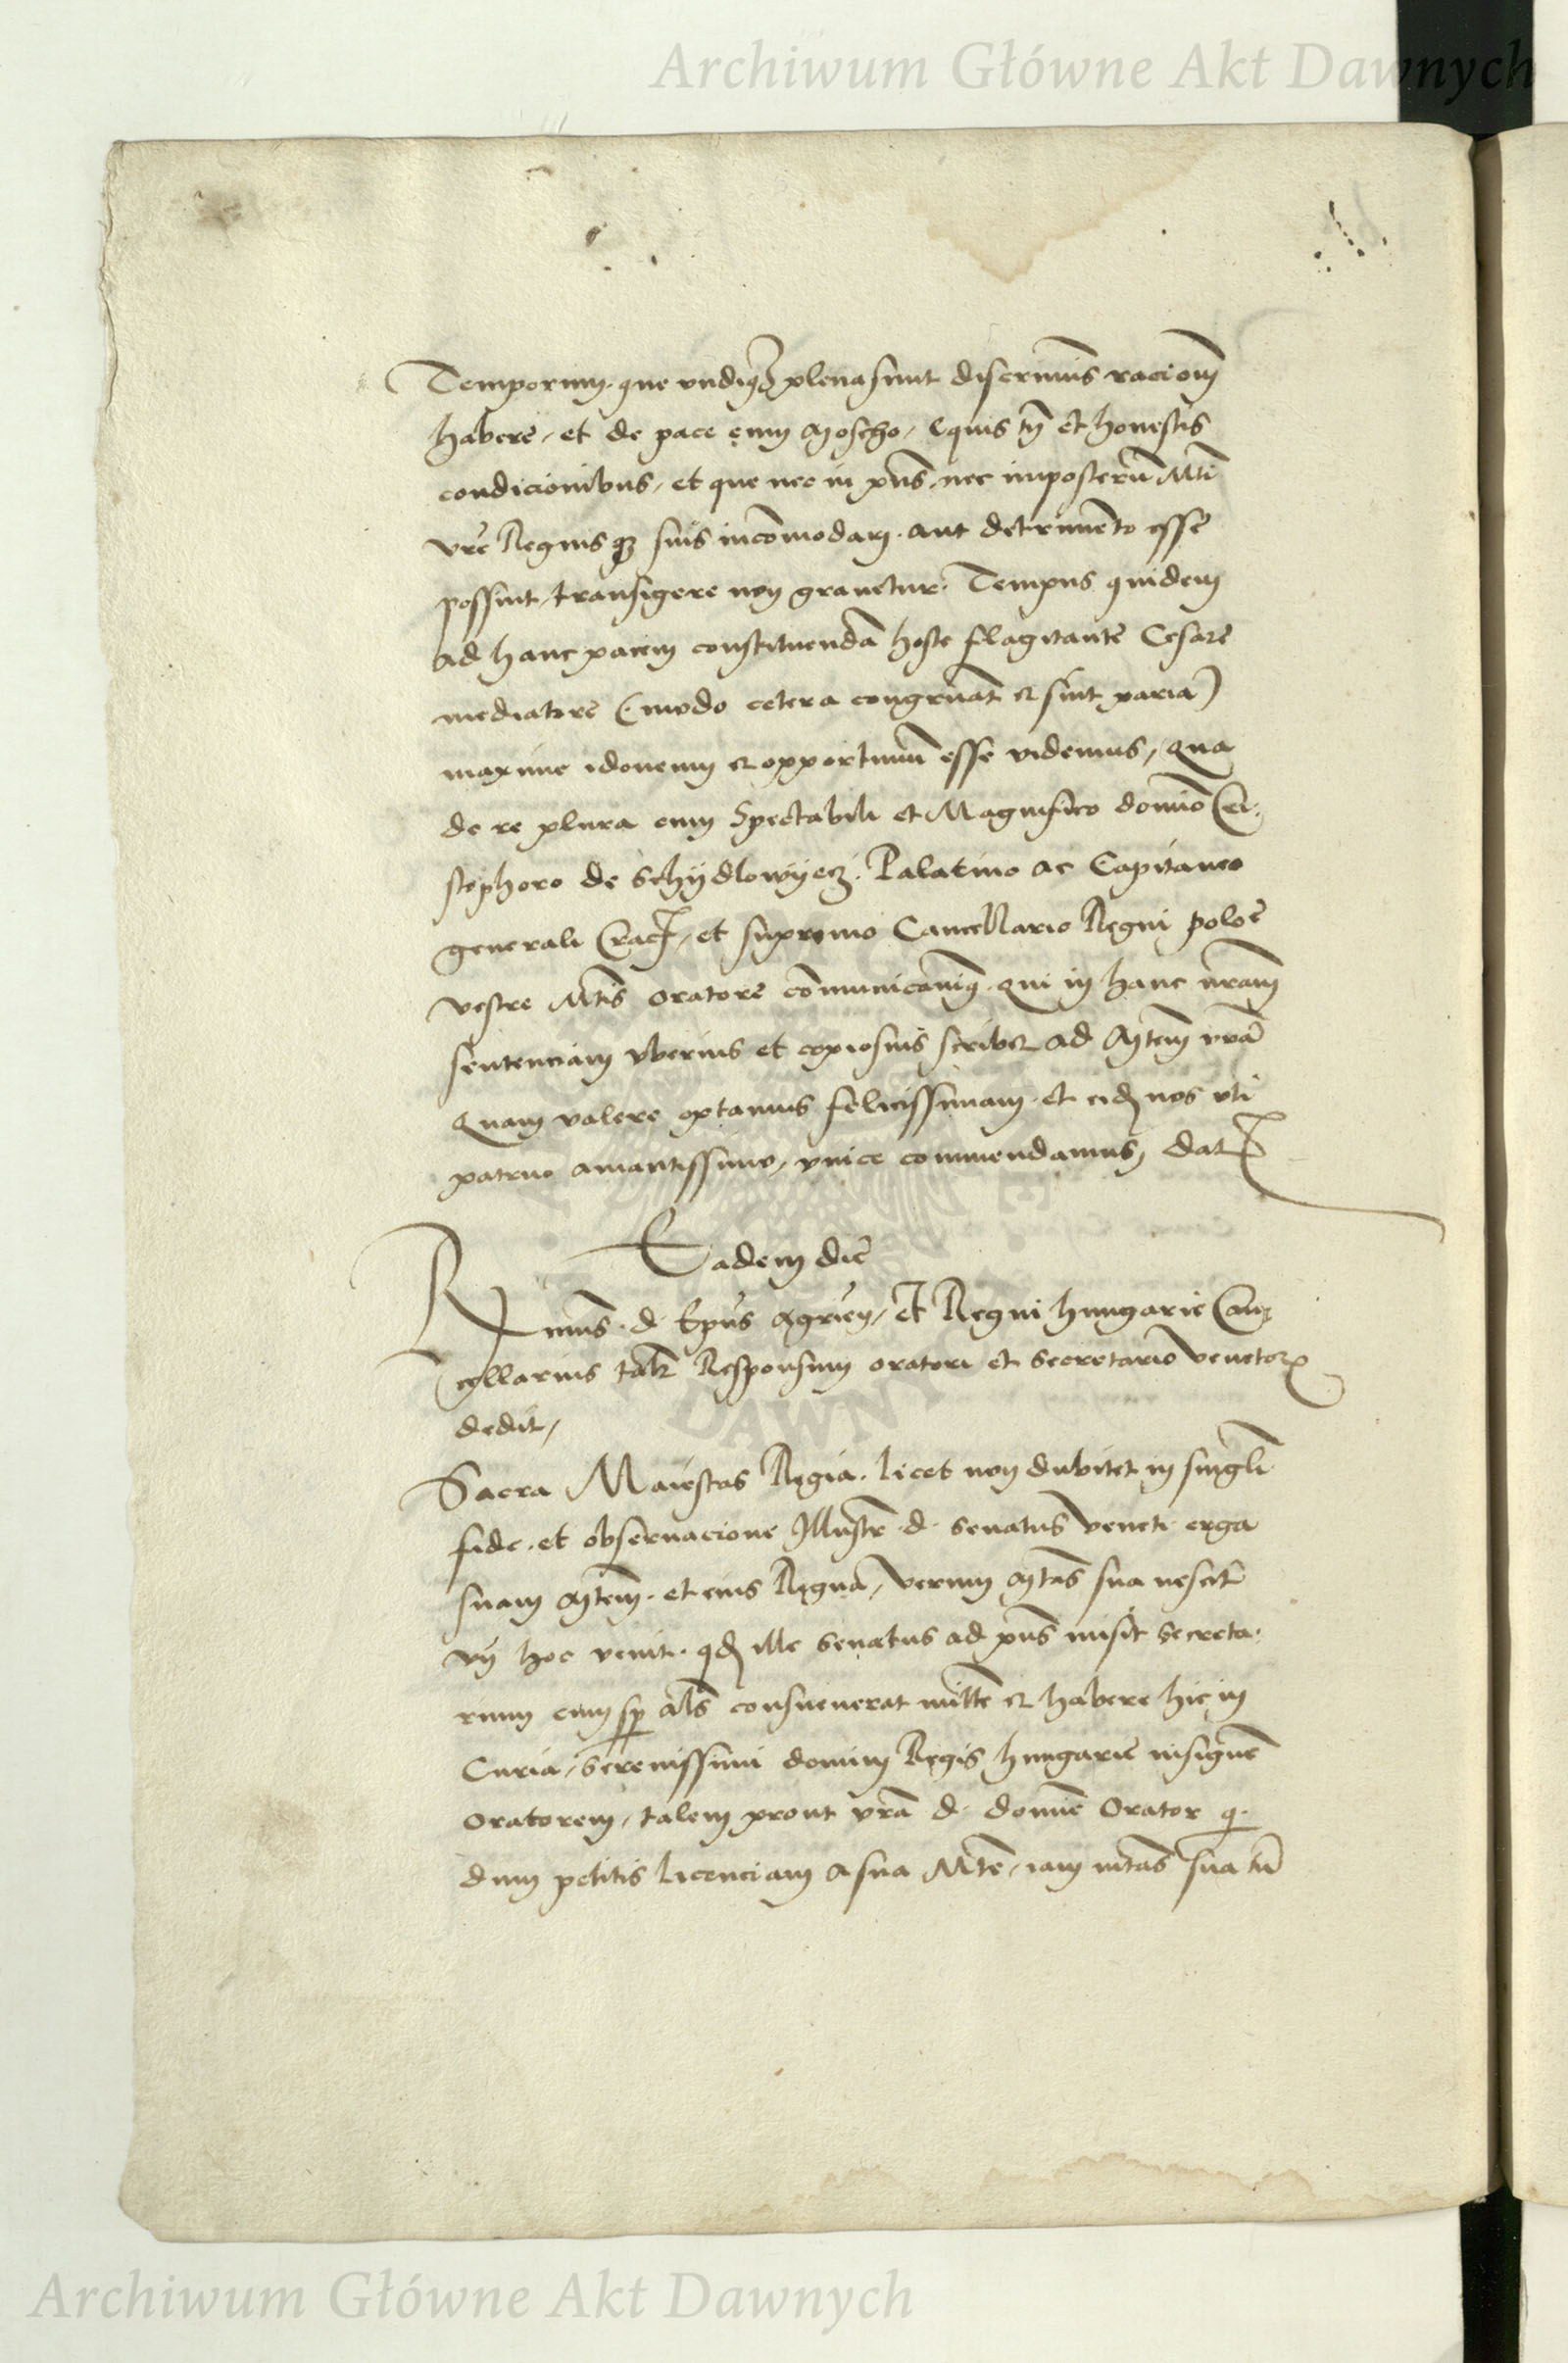 Archiwum Główne Akt Dawnych
Temporum. que vndiqꝫ plena sunt discriminis racionē
habere, et de pace cum Moscho, Equis tn̄ et honestis
condicionibus, et que nec in pn̄s, nec imposterū Mti
vrē Regnisqꝫ suis incōmodari. aut detrimento esse
possint, transigere non grauetur. Tempus quidem
ad hanc pacem constituendā hoste flagitante Cesare
mediatore (modo cetera congruāt et sint paria)
maxime idoneum et opportunū esse videmus, Qua
de re plura cum Spectabili et Magnifico domīo Cri-
stophoro de Schÿdlowÿecz. Palatino ac Capitaneo
generali Crac̄, et supremo Cancellario Regni poloē
vestre Mtis oratore cōmunicauimꝰ. qui in hanc nr̄am
sentenciam vberius et copiosius scribet ad Mtem vrā
Quam valere optamus felicissimam. et eidꝫ nos vti
patruo amantissimo, vnice commendamus, Dat
Eadem die
Rmus. d. Epūs Agrieñ, et Regni hungarie Can-
cellarius tale Responsum oratori et Secretario Venetoꝝ
dedit,
Sacra Maiestas Regia. licet non dubitet in singlī
fide. et obseruacione Illustr̄. d. Senatus Veneti erga
suam Mtem. et eius Regna, verum Mtas sua nescit
vn̄ hoc venit. qdꝫ ille Senatus ad pn̄s misit Secreta-
rium cum sp̄ als̄ consueuerat mittē et habere hic in
Curia, Serenissimi domini Regis hungarie insignē
oratorem, talem prout vrā d. domīe Orator q.
dum petitis licenciam a sua Mte, iam mtas sua tū
Archiwum Główne Akt Dawnych